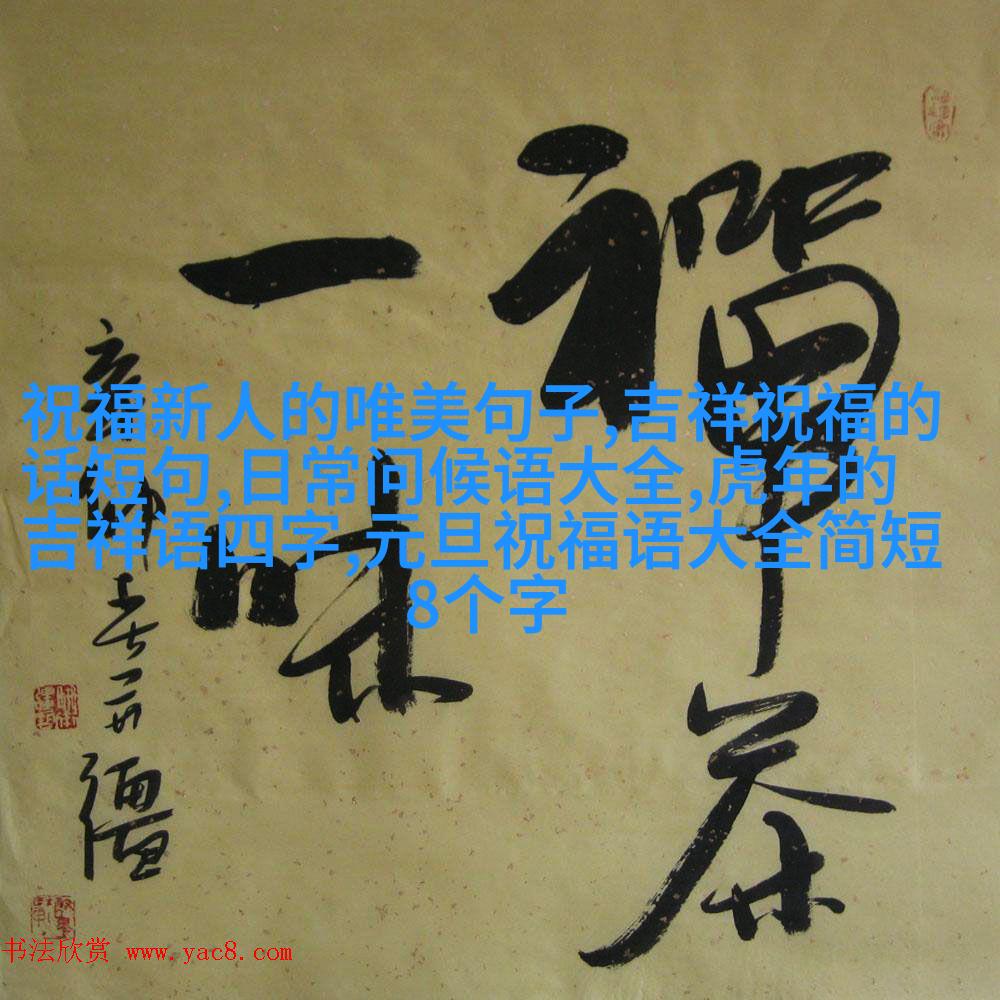 禪茶
一味
祝福新人的唯美句子,吉祥祝福的
话短句,日常问候语大全,虎年的
吉祥语四字,元旦祝福语大全简短
8个字
书法欣赏 www.yac8.com